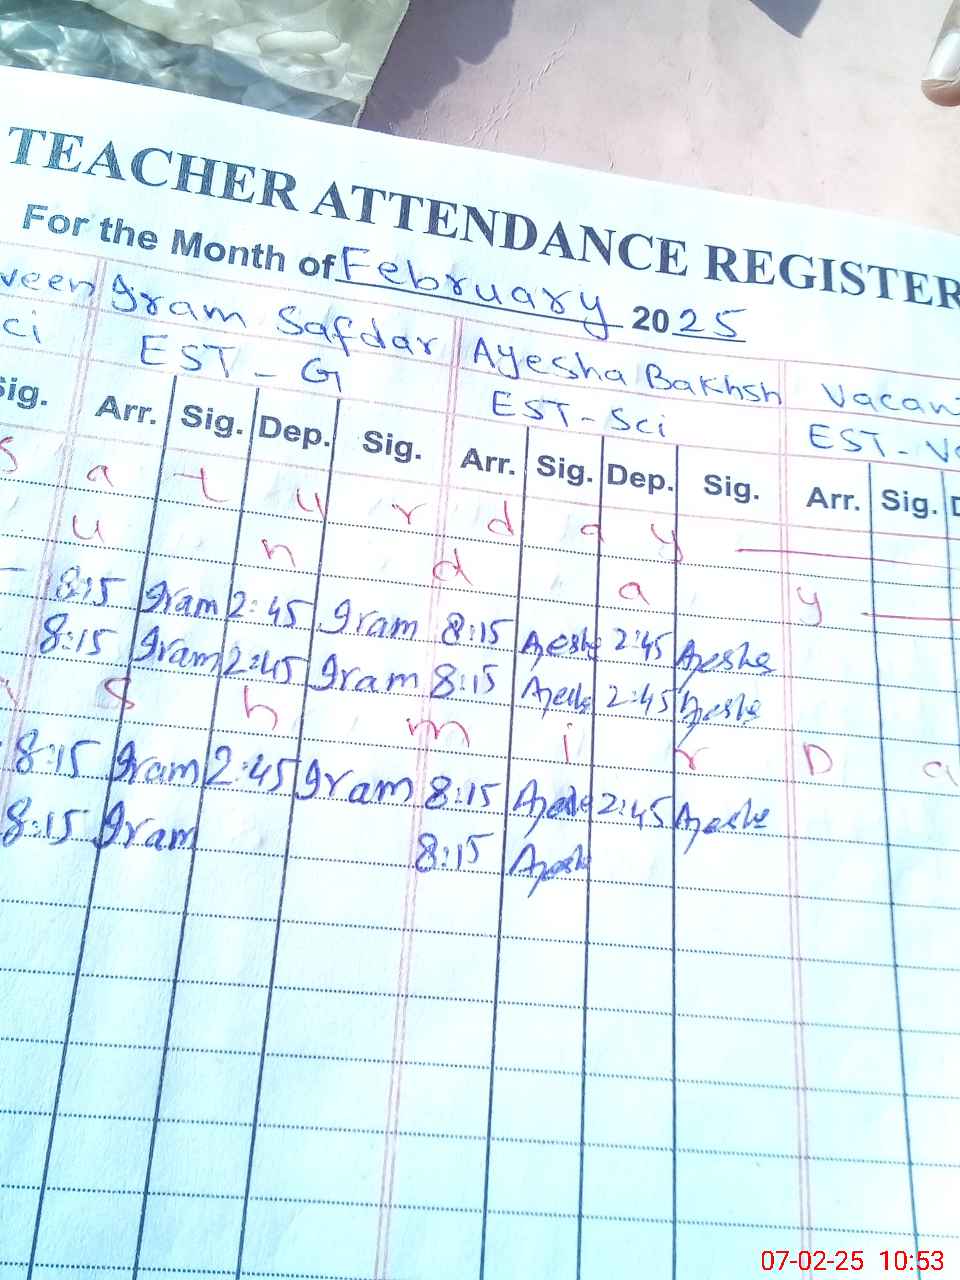 TEACHER ATTENDANCE REGISTER
For the Month of February 2025
veen Iram Safdar Ayesha Bakhsh Vacan
ci EST - G EST - Sci EST - Va
Sig. Arr. Sig. Dep. Sig. Arr. Sig. Dep. Sig. Arr. Sig. D
S a t u r d a y
u n d a y
8:15 Iram 2:45 Iram 8:15 Ayesha 2:45 Ayesha
8:15 Iram 2:45 Iram 8:15 Ayesha 2:45 Ayesha
s h m i r D a
8:15 Iram 2:45 Iram 8:15 Ayesha 2:45 Ayesha
8:15 Iram 8:15 Ayesh
07-02-25 10:53